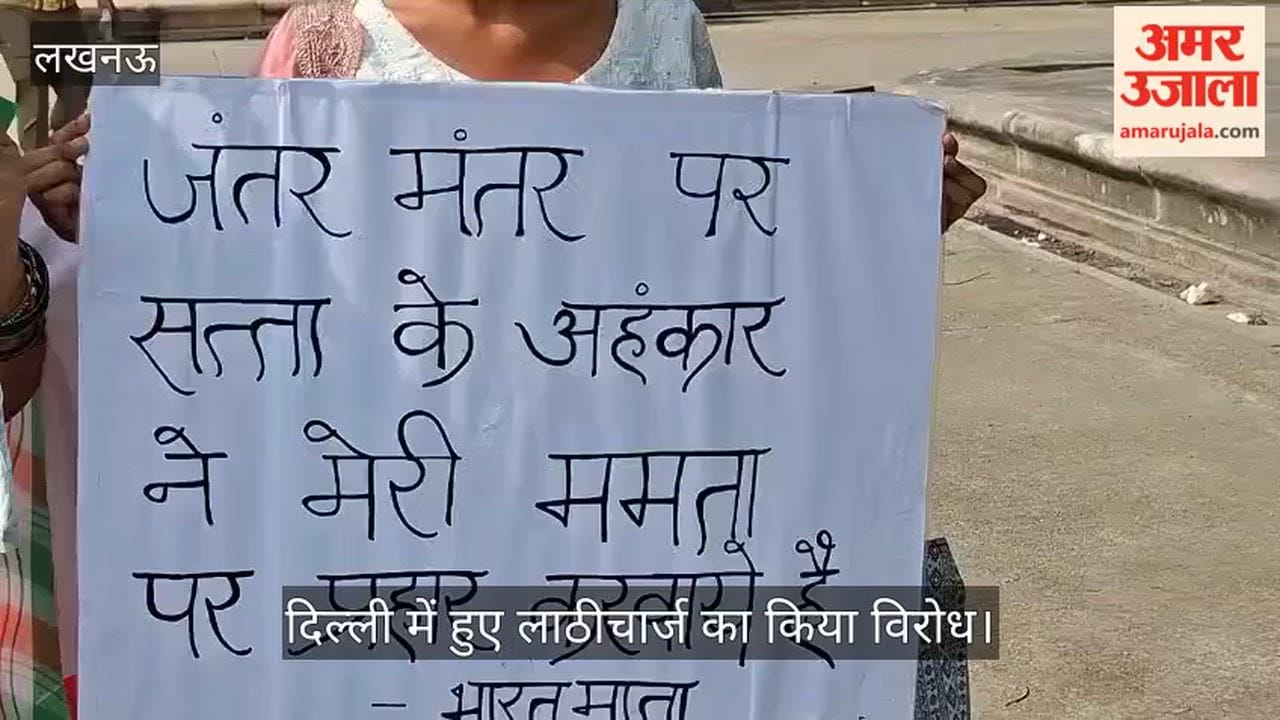 लखनऊ
अमर
उजाला
amarujala.com
जंतर मंतर पर
सत्ता के अहंकार
ने मेरी ममता
पर प्रहार करवाये है
दिल्ली में हुए लाठीचार्ज का किया विरोध।
- भारत माता